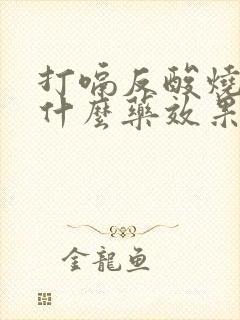 打嗝反酸燒
什麼藥效果
金龍魚